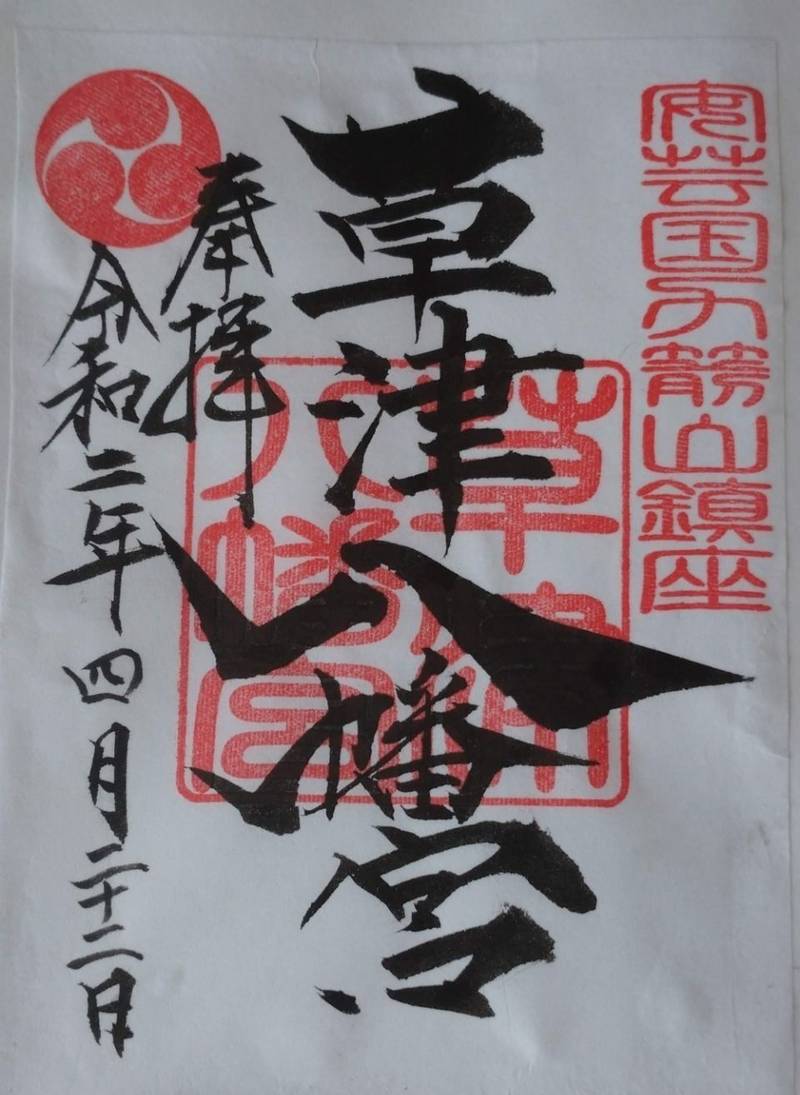 安芸国力箭山鎮座
草津八幡宮
草津八幡宮
奉拝
令和二年四月二十二日